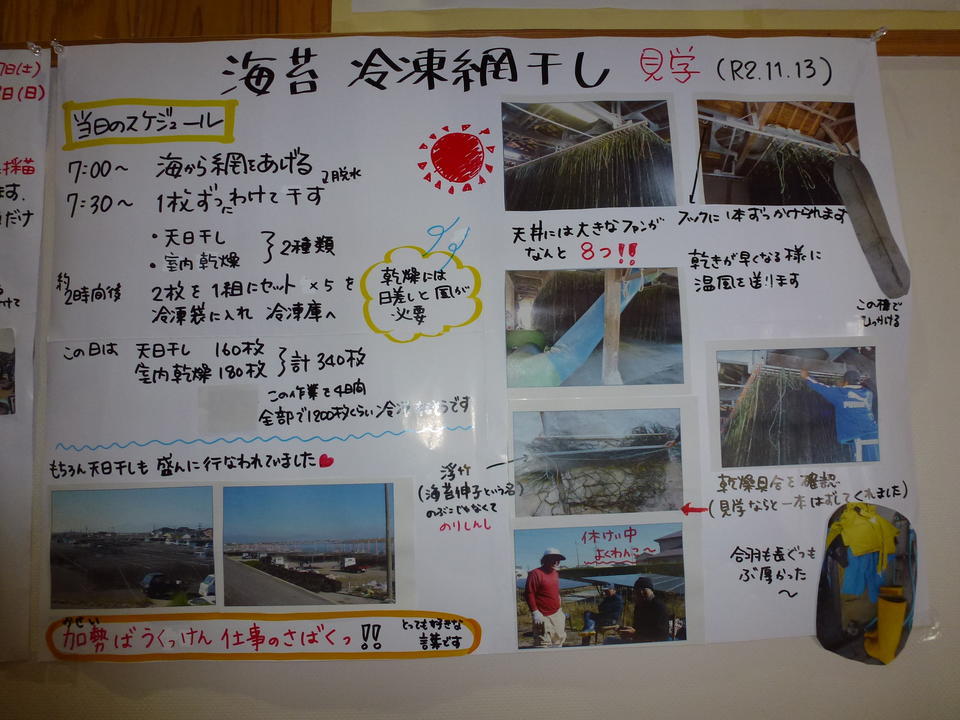 海苔 冷凍網干し 見学 (R2.11.13)
当日のスケジュール
7:00〜 海から網をあげる
↴脱水
7:30〜 1枚ずつわけて干す
・天日干し
・室内乾燥
2種類
約
2時間後
2枚を1組にセット ×5を
冷凍袋に入れ 冷凍庫へ
乾燥には
日差しと風が
必要
この日は 天日干し 160枚
室内乾燥 180枚
計340枚
この作業を4日間
全部で1200枚くらい
もちろん天日干しも 盛んに行なわれていました
かせい
加勢ばうくっけん 仕事のさばくっ!!
とっても好きな
言葉です
天井には大きなファンが
なんと 8つ!!
フックに1本ずつかけられます
乾きが早くなる様に
温風を送ります
この棒で
ひっかける
浮竹
(海苔伸子という名)
のぶこじゃなくて
のりしんし
乾燥具合を確認
(見学ならと一本はずしてくれました)
休けい中
よくわんこ〜
合羽も長ぐつも
ぶ厚かった
〜
日(土)
日(日)
採苗
ます.
だけ